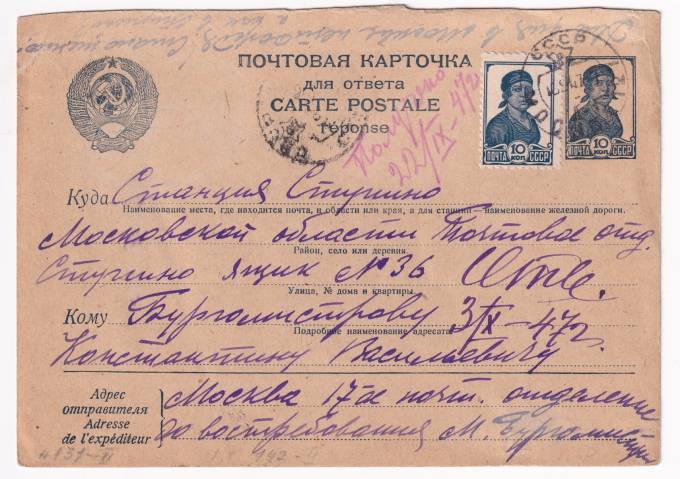 в Москве
ПОЧТОВАЯ КАРТОЧКА
для ответа
CARTE POSTALE
réponse
СССР
Получено
22/IX-47г
10 КОП.
ПОЧТА СССР
10 КОП.
ПОЧТА СССР
Куда Станция Ступино
Наименование места, где находится почта, и области или края, а для станции—наименование железной дороги.
Московской области Почтовое отд.
Район, село или деревня.
Ступино ящик №36
Улица, № дома и квартиры.
Кому Бургомистрову 3/IX-47г.
Подробное наименование адресата
Константину Васильевичу
Адрес отправителя
Adresse de l'expéditeur
Москва 17-ое почт. отделение
до востребования М. Бургомистров